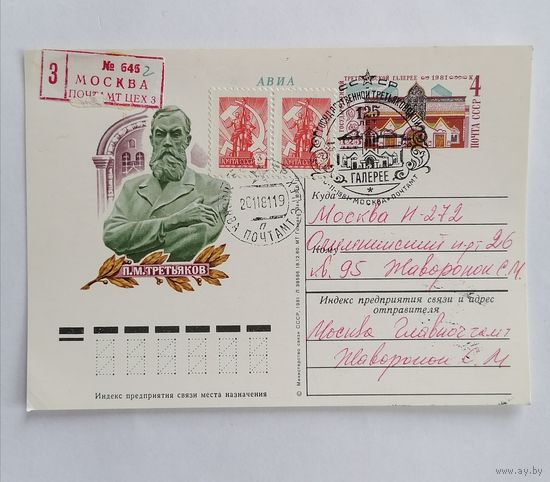 З
№ 646 2
МОСКВА
ПОЧТАМТ ЦЕХ 3
АВИА
ПОЧТА СССР
ПОЧТА СССР
СССР
ГОСУДАРСТВЕННОЙ ТРЕТЬЯКОВСКОЙ
125
ЛЕТ
ГАЛЕРЕЕ
МОСКВА-ПОЧТАМТ
ТРЕТЬЯКОВСКОЙ ГАЛЕРЕЕ 1981
4
К
ПОЧТА СССР
МОСКВА ПОЧТАМТ
20118119
П.М.ТРЕТЬЯКОВ
Куда
Москва И-272
Олимпийский пр. 26
Кому
к. 95 Жаворонок С.М
Индекс предприятия связи и адрес
отправителя
Москва Главпочтамт
Жаворонок С М
Индекс предприятия связи места назначения
© Министерство связи СССР, 1981
www.ay.by